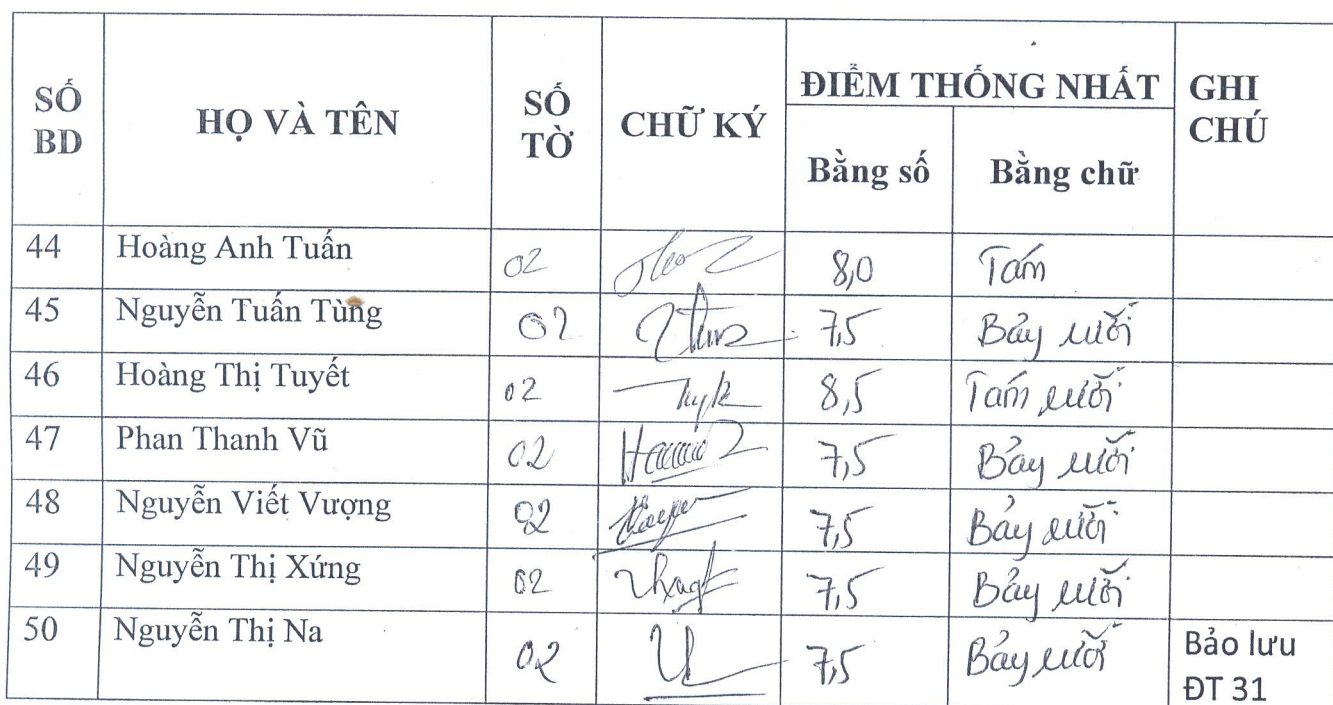 SỐ BD HỌ VÀ TÊN SỐ TỜ CHỮ KÝ ĐIỂM THỐNG NHẤT GHI CHÚ
Bằng số Bằng chữ
44 Hoàng Anh Tuấn 02 8,0 Tám
45 Nguyễn Tuấn Tùng 02 7,5 Bảy rưỡi
46 Hoàng Thị Tuyết 02 8,5 Tám rưỡi
47 Phan Thanh Vũ 02 7,5 Bảy rưỡi
48 Nguyễn Viết Vượng 02 7,5 Bảy rưỡi
49 Nguyễn Thị Xứng 02 7,5 Bảy rưỡi
50 Nguyễn Thị Na 02 7,5 Bảy rưỡi Bảo lưu
ĐT 31